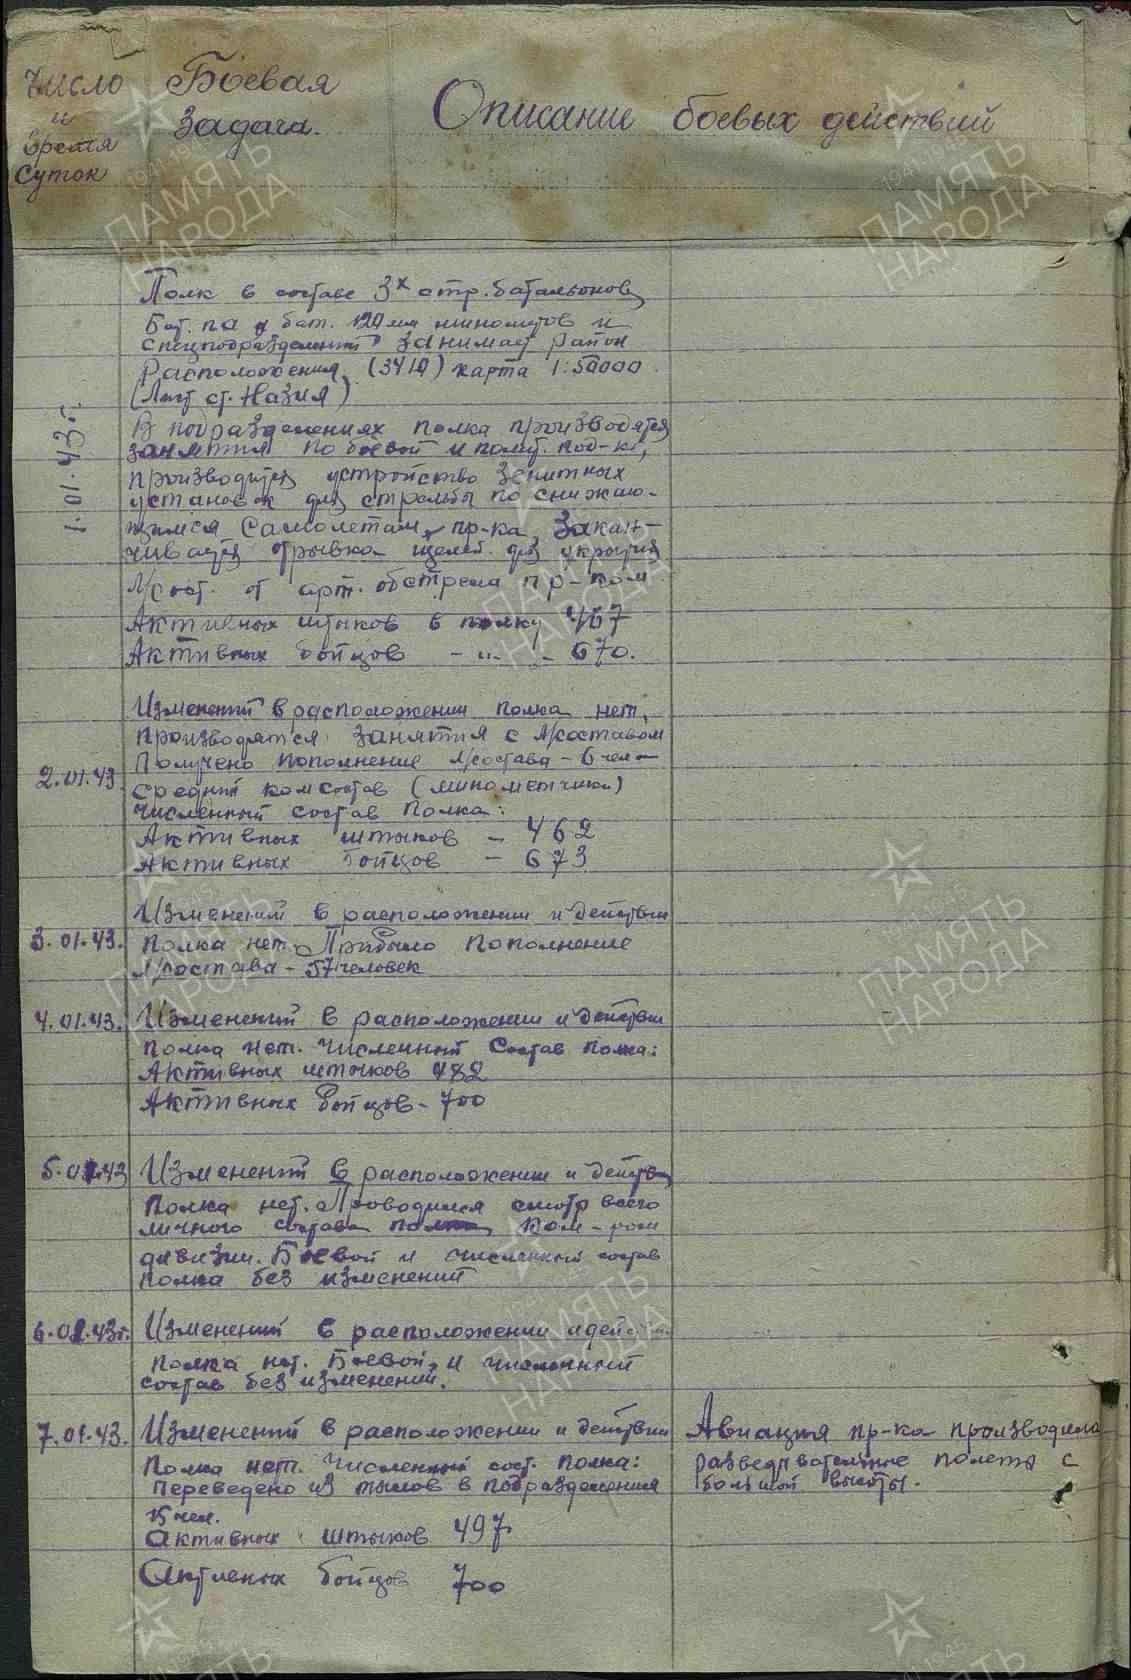 Число
и
время
суток
Боевая
задача.
Описание боевых действий
1.01.43г.
Полк в составе 3х стр. батальонов,
Бат. па и бат. 120 мм минометов и
спецподразделений занимает район
расположения (3410) карта 1:50000
(Лист ст. Назия)
В подразделениях полка производятся
занятия по боевой и полит. под-ке,
производится устройство зенитных
установок для стрельбы по снижаю-
щимся самолетам пр-ка, закан-
чивается отрывка щелей для укрытия
л/сост. от арт. обстрела пр-ком.
Активных штыков в полку 467
Активных бойцов - „ - 670.
2.01.43
Изменений в расположении полка нет,
производятся занятия с л/составом
Получено пополнение л/состава - 6 чел -
средний комсостав (минометчики)
численный состав полка:
Активных штыков - 462
Активных бойцов - 673
3.01.43.
Изменений в расположении и действии
полка нет. Прибыло пополнение
л/состава - 57 человек
4.01.43.
Изменений в расположении и действии
полка нет. Численный состав полка:
Активных штыков 482
Активных бойцов - 700
5.01.43
Изменений в расположении и действ
полка нет. Проводился смотр всего
личного состава полка ком-ром
дивизии. Боевой и численный состав
полка без изменений
6.01.43г.
Изменений в расположении и действ
полка нет. Боевой и численный
состав без изменений.
7.01.43.
Изменений в расположении и действии
полка нет. Численный сост. полка:
переведено из тылов в подразделения
15 чел.
Активных штыков 497
Активных бойцов 700
Авиация пр-ка производила
разведывательные полеты с
большой высоты.
1941-1945
ПАМЯТЬ
НАРОДА